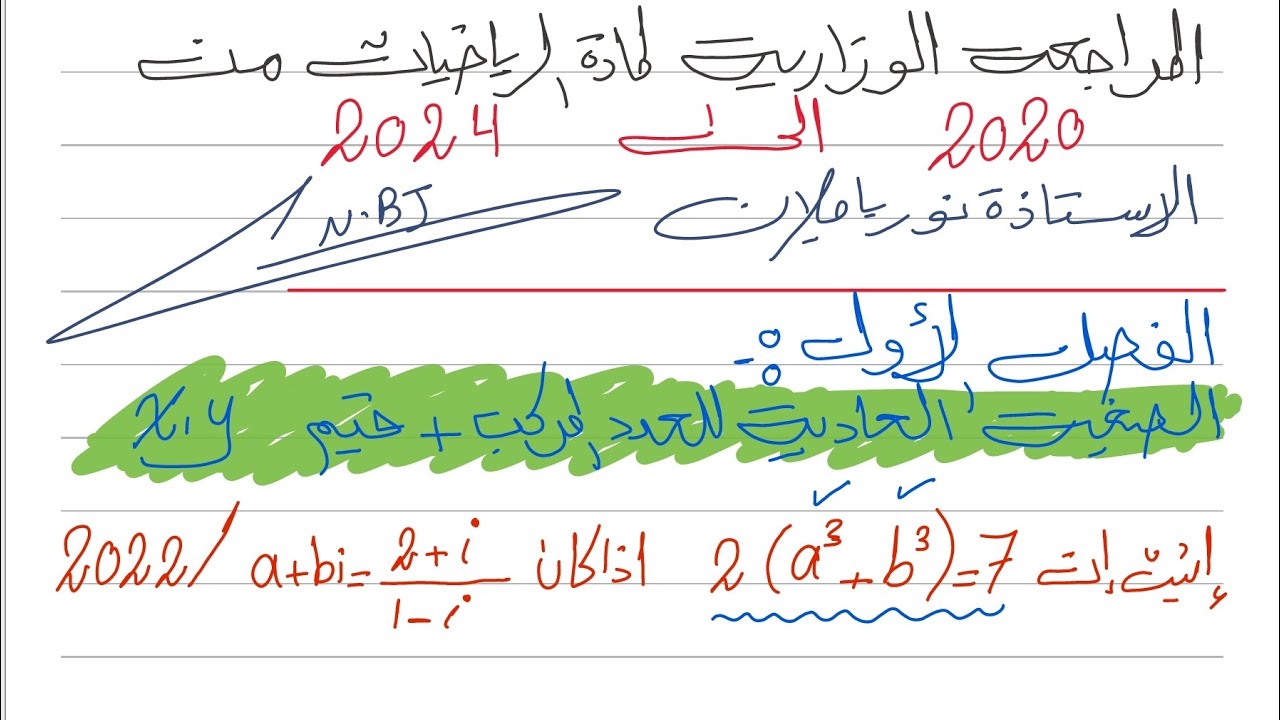 المراجعة الوزارية لمادة الرياضيات من
2020 الى 2024
الاستاذة نور ياملان
N.BJ
الفصل الأول :-
الصيغة العادية للعدد المركب + حقيم x,y
إثبت إن 2(a³+b³)=7 اذا كان a+bi=\frac{2+i}{1-i} /2022